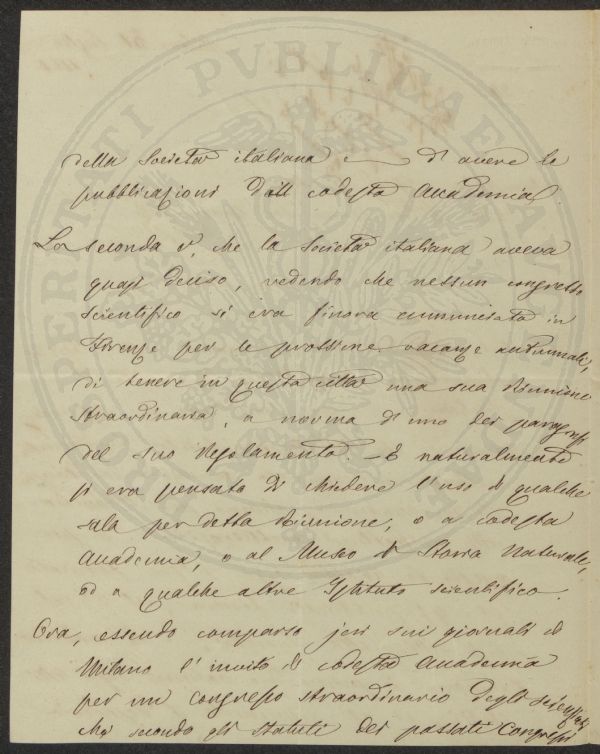 della Società italiana e di avere le
pubblicazioni dell codesta Accademia.
La seconda è, che la Società italiana aveva
quasi deciso, vedendo che nessun congresso
scientifico si era finora annunciato in
Firenze per le prossime vacanze autunnali,
di tenere in questa città una sua Riunione
straordinaria, a norma di uno dei paragrafi
del suo Regolamento. — E naturalmente
si era pensato di chiedere l'uso di qualche
sala per detta Riunione, o a codesta
Accademia, o al Museo di Storia Naturale,
od a qualche altro Istituto scientifico.
Ora, essendo comparso jeri sui giornali di
Milano l'invito di codesta Accademia
per un congresso straordinario degli scienziati
secondo gli statuti dei passati Congressi
PERATI PVBLICAE